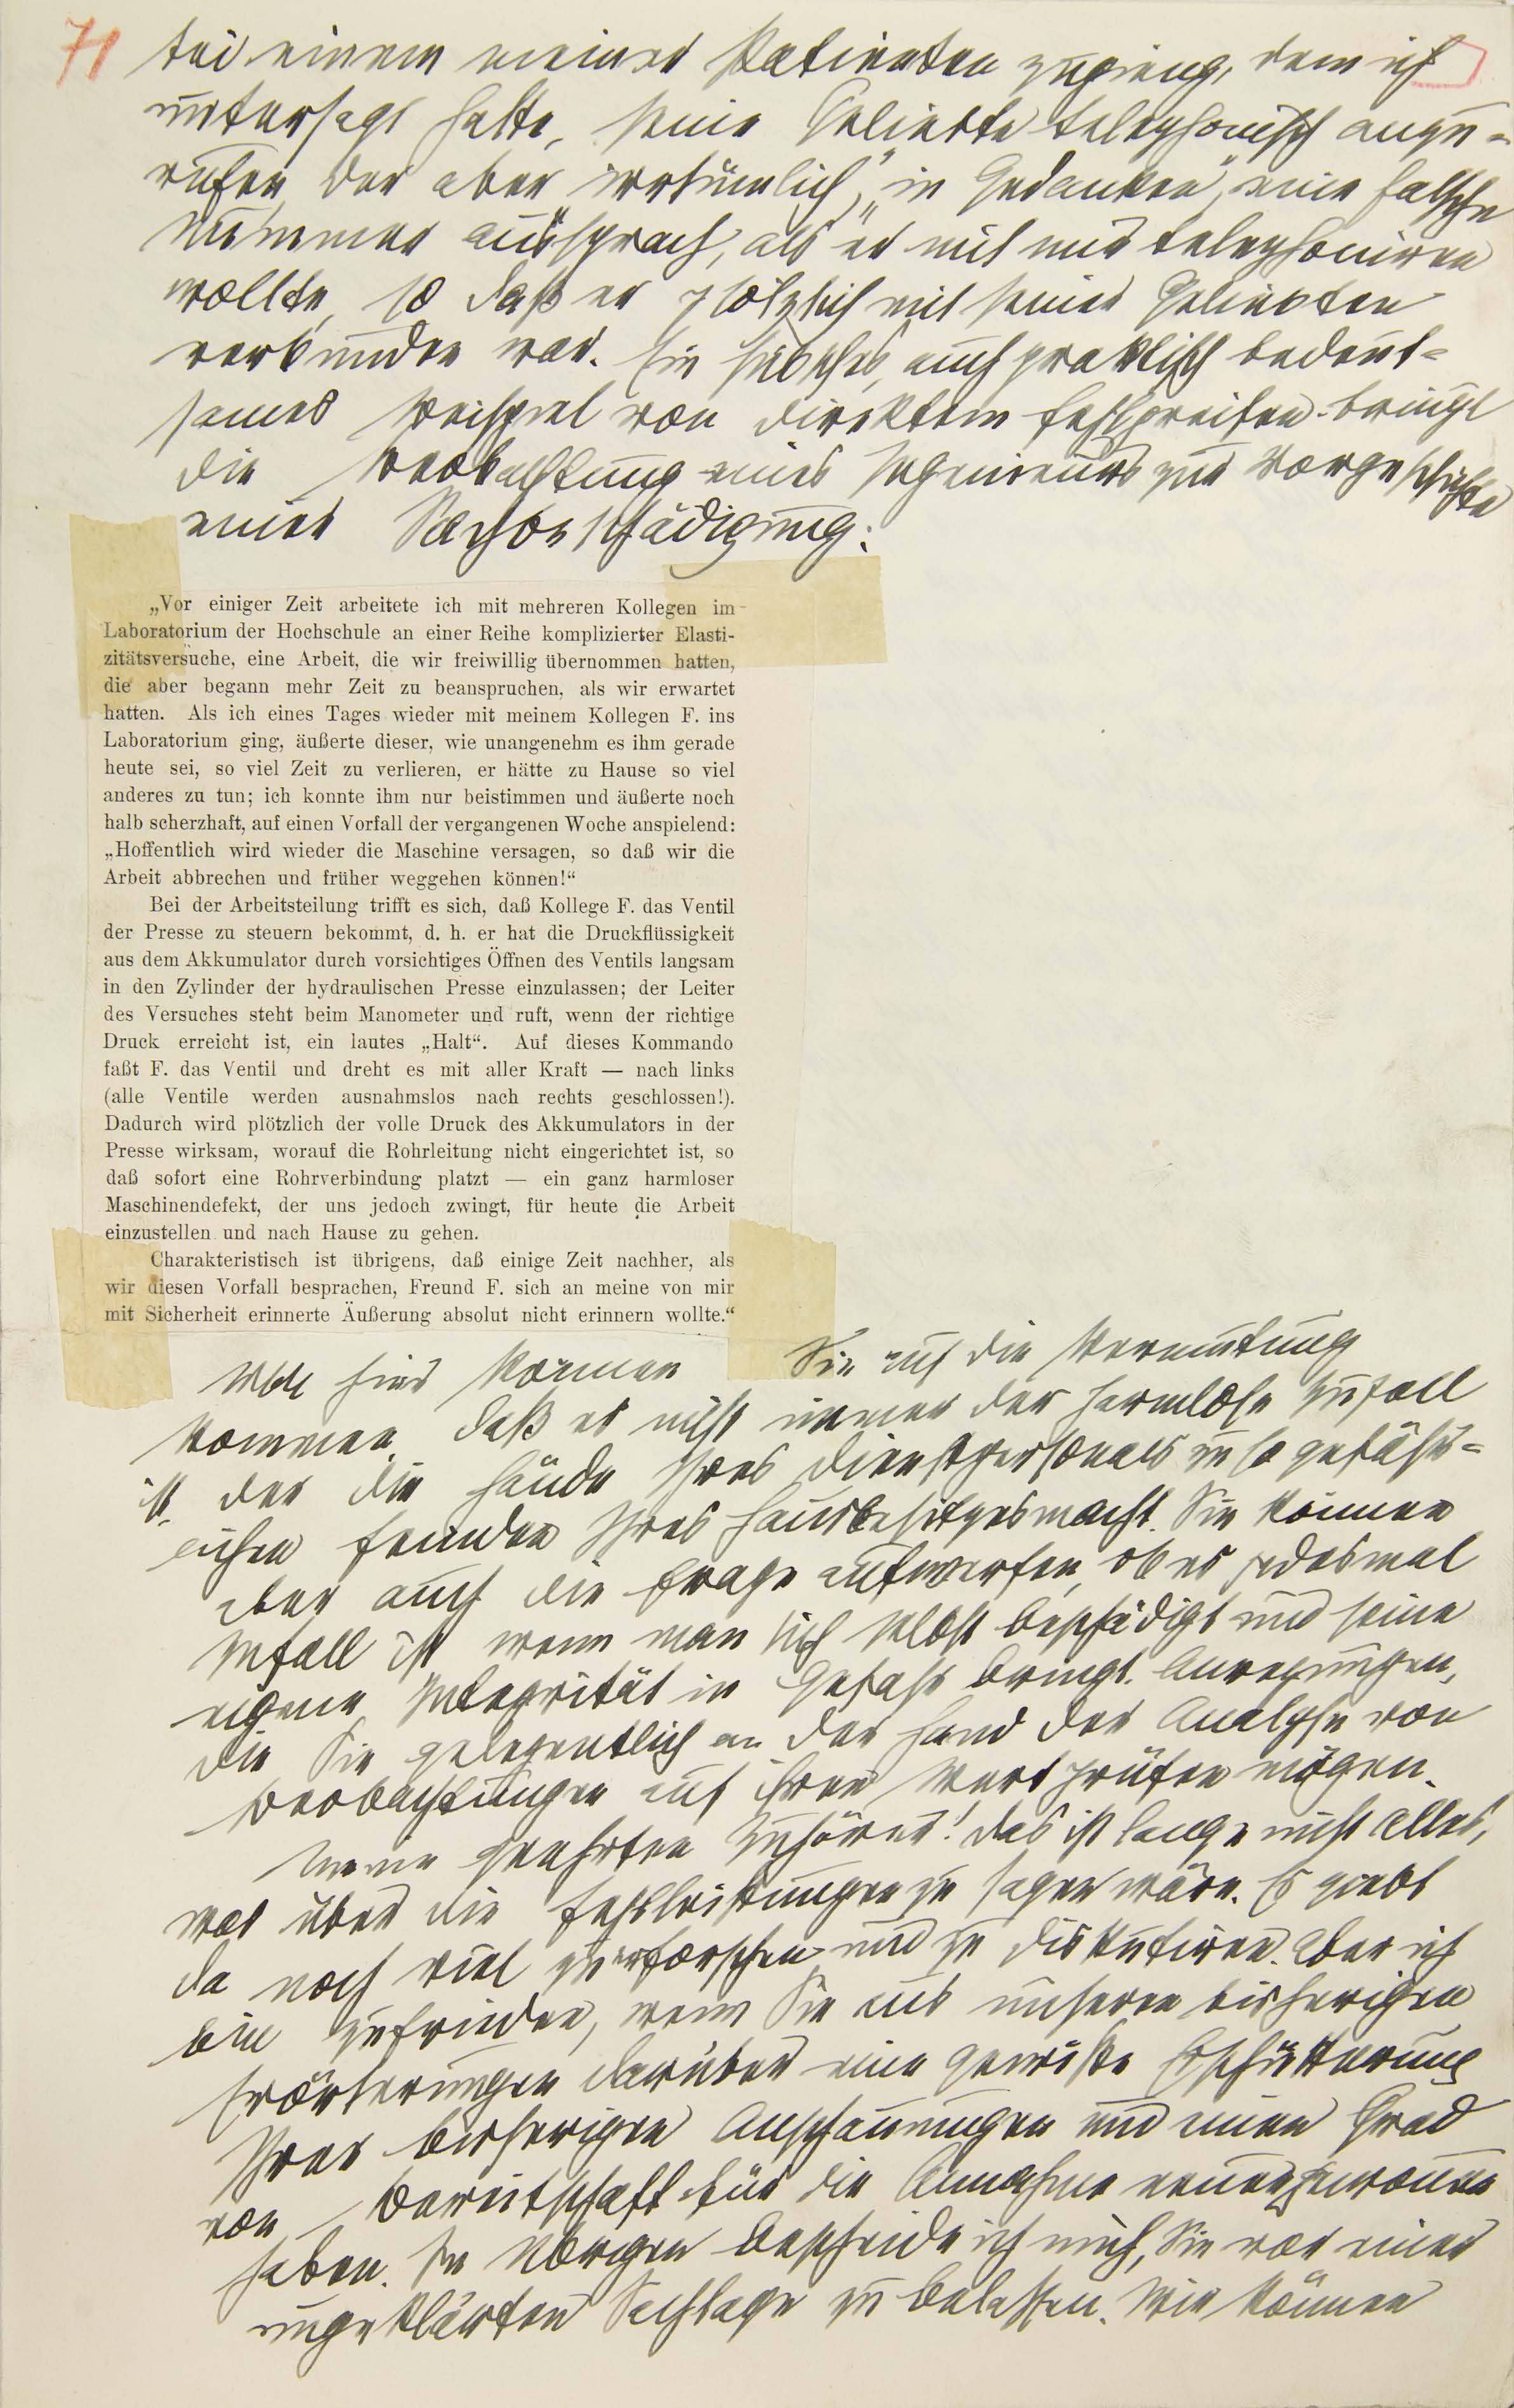 71
bei einem meiner Patienten zugieng, dem ich
untersagt hatte, seine Geliebte telephonisch anzu-
rufen, der aber „irrtümlich“, „in Gedanken“, eine falsche
Nummer aussprach, als er mit mir telephoniren
wollte, so daß er plötzlich mit seiner Geliebten
verbunden war. Ein hübsches, auch praktisch bedeut-
sames Beispiel von direktem Fehlgreifen bringt
die Beobachtung eines Ingenieurs zur Vorgeschichte
einer Sachbeschädigung:
„Vor einiger Zeit arbeitete ich mit mehreren Kollegen im
Laboratorium der Hochschule an einer Reihe komplizierter Elasti-
zitätsversuche, eine Arbeit, die wir freiwillig übernommen hatten,
die aber begann mehr Zeit zu beanspruchen, als wir erwartet
hatten. Als ich eines Tages wieder mit meinem Kollegen F. ins
Laboratorium ging, äußerte dieser, wie unangenehm es ihm gerade
heute sei, so viel Zeit zu verlieren, er hätte zu Hause so viel
anderes zu tun; ich konnte ihm nur beistimmen und äußerte noch
halb scherzhaft, auf einen Vorfall der vergangenen Woche anspielend:
„Hoffentlich wird wieder die Maschine versagen, so daß wir die
Arbeit abbrechen und früher weggehen können!“
Bei der Arbeitsteilung trifft es sich, daß Kollege F. das Ventil
der Presse zu steuern bekommt, d. h. er hat die Druckflüssigkeit
aus dem Akkumulator durch vorsichtiges Öffnen des Ventils langsam
in den Zylinder der hydraulischen Presse einzulassen; der Leiter
des Versuches steht beim Manometer und ruft, wenn der richtige
Druck erreicht ist, ein lautes „Halt“. Auf dieses Kommando
faßt F. das Ventil und dreht es mit aller Kraft — nach links
(alle Ventile werden ausnahmslos nach rechts geschlossen!).
Dadurch wird plötzlich der volle Druck des Akkumulators in der
Presse wirksam, worauf die Rohrleitung nicht eingerichtet ist, so
daß sofort eine Rohrverbindung platzt — ein ganz harmloser
Maschinendefekt, der uns jedoch zwingt, für heute die Arbeit
einzustellen und nach Hause zu gehen.
Charakteristisch ist übrigens, daß einige Zeit nachher, als
wir diesen Vorfall besprachen, Freund F. sich an meine von mir
mit Sicherheit erinnerte Äußerung absolut nicht erinnern wollte.“
Von hier können Sie auf die Vermutung
kommen, daß es nicht immer der harmlose Zufall
ist, der die Hände Ihres Dienstpersonals zu so gefähr-
lichen Feinden Ihres Hausbesitzes macht. Sie können
aber auch die Frage aufwerfen, ob es jedesmal
Zufall ist, wenn man sich selbst beschädigt und seine
eigene Integrität in Gefahr bringt. Anregungen,
die Sie gelegentlich an der Hand der Analyse von
Beobachtungen auf ihren Wert prüfen mögen.
Meine geehrten Zuhörer! Das ist lange nicht alles,
was über die Fehlleistungen zu sagen wäre. Es giebt
da noch viel zu erforschen und zu diskutiren. Aber ich
bin zufrieden, wenn Sie aus unseren bisherigen
Erörterungen darüber eine gewisse Erschütterung
Ihrer bisherigen Anschauungen und einen Grad
von Bereitschaft für die Annahme neuer gewonnen
haben. Im Übrigen bescheide ich mich, Sie vor einer
ungeklärten Sachlage zu belassen. Wir können